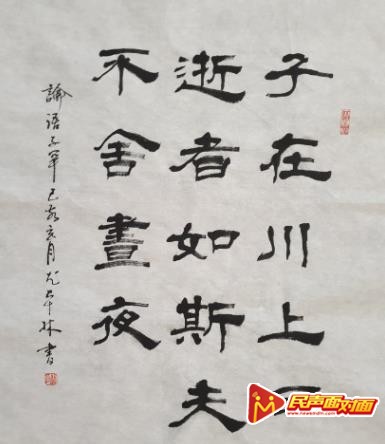 子在川上
逝者如斯夫
不舍晝夜
論語子罕己亥亥月
林書
民声面对面